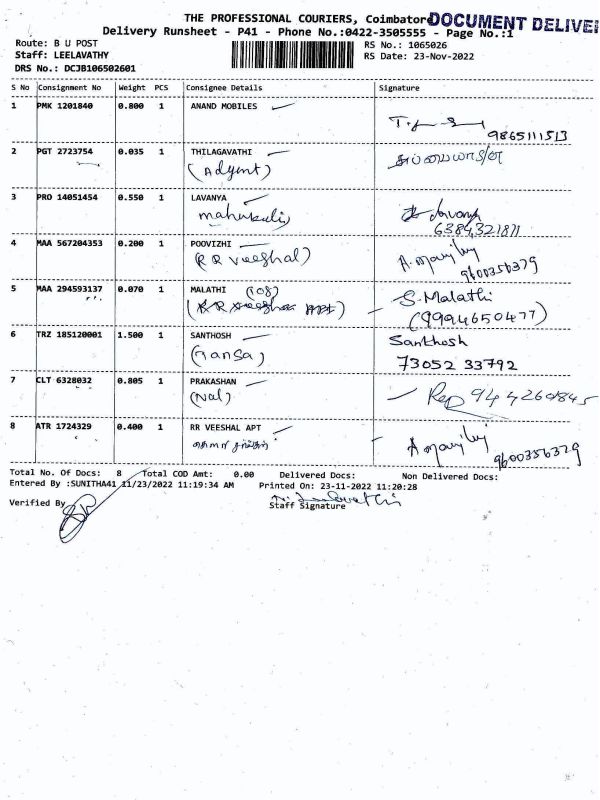 THE PROFESSIONAL COURIERS, Coimbatore
DOCUMENT DELIVE
Delivery Runsheet - P41 - Phone No.:0422-3505555 - Page No.:1
Route: B U POST
RS No.: 1065026
Staff: LEELAVATHY
RS Date: 23-Nov-2022
DRS No.: DCJB106502601
S No Consignment No Weight PCS Consignee Details Signature
1 PMK 1201840 0.800 1 ANAND MOBILES
9865111513
2 PGT 2723754 0.035 1 THILAGAVATHI
3 PRO 14051454 0.550 1 LAVANYA
6384321871
4 MAA 567204353 0.200 1 POOVIZHI
(RR Veeshal)
9600356379
5 MAA 294593137 0.070 1 MALATHI (108)
S. Malathi
(9994650477)
6 TRZ 185120001 1.500 1 SANTHOSH
Santhosh
(Tansa)
73052 33792
7 CLT 6328032 0.805 1 PRAKASHAN
(Nal)
8 ATR 1724329 0.400 1 RR VEESHAL APT
9600356379
Total No. Of Docs: 8 Total COD Amt: 0.00 Delivered Docs: Non Delivered Docs:
Entered By :SUNITHA41 11/23/2022 11:19:34 AM Printed On: 23-11-2022 11:20:28
Verified By
Staff Signature